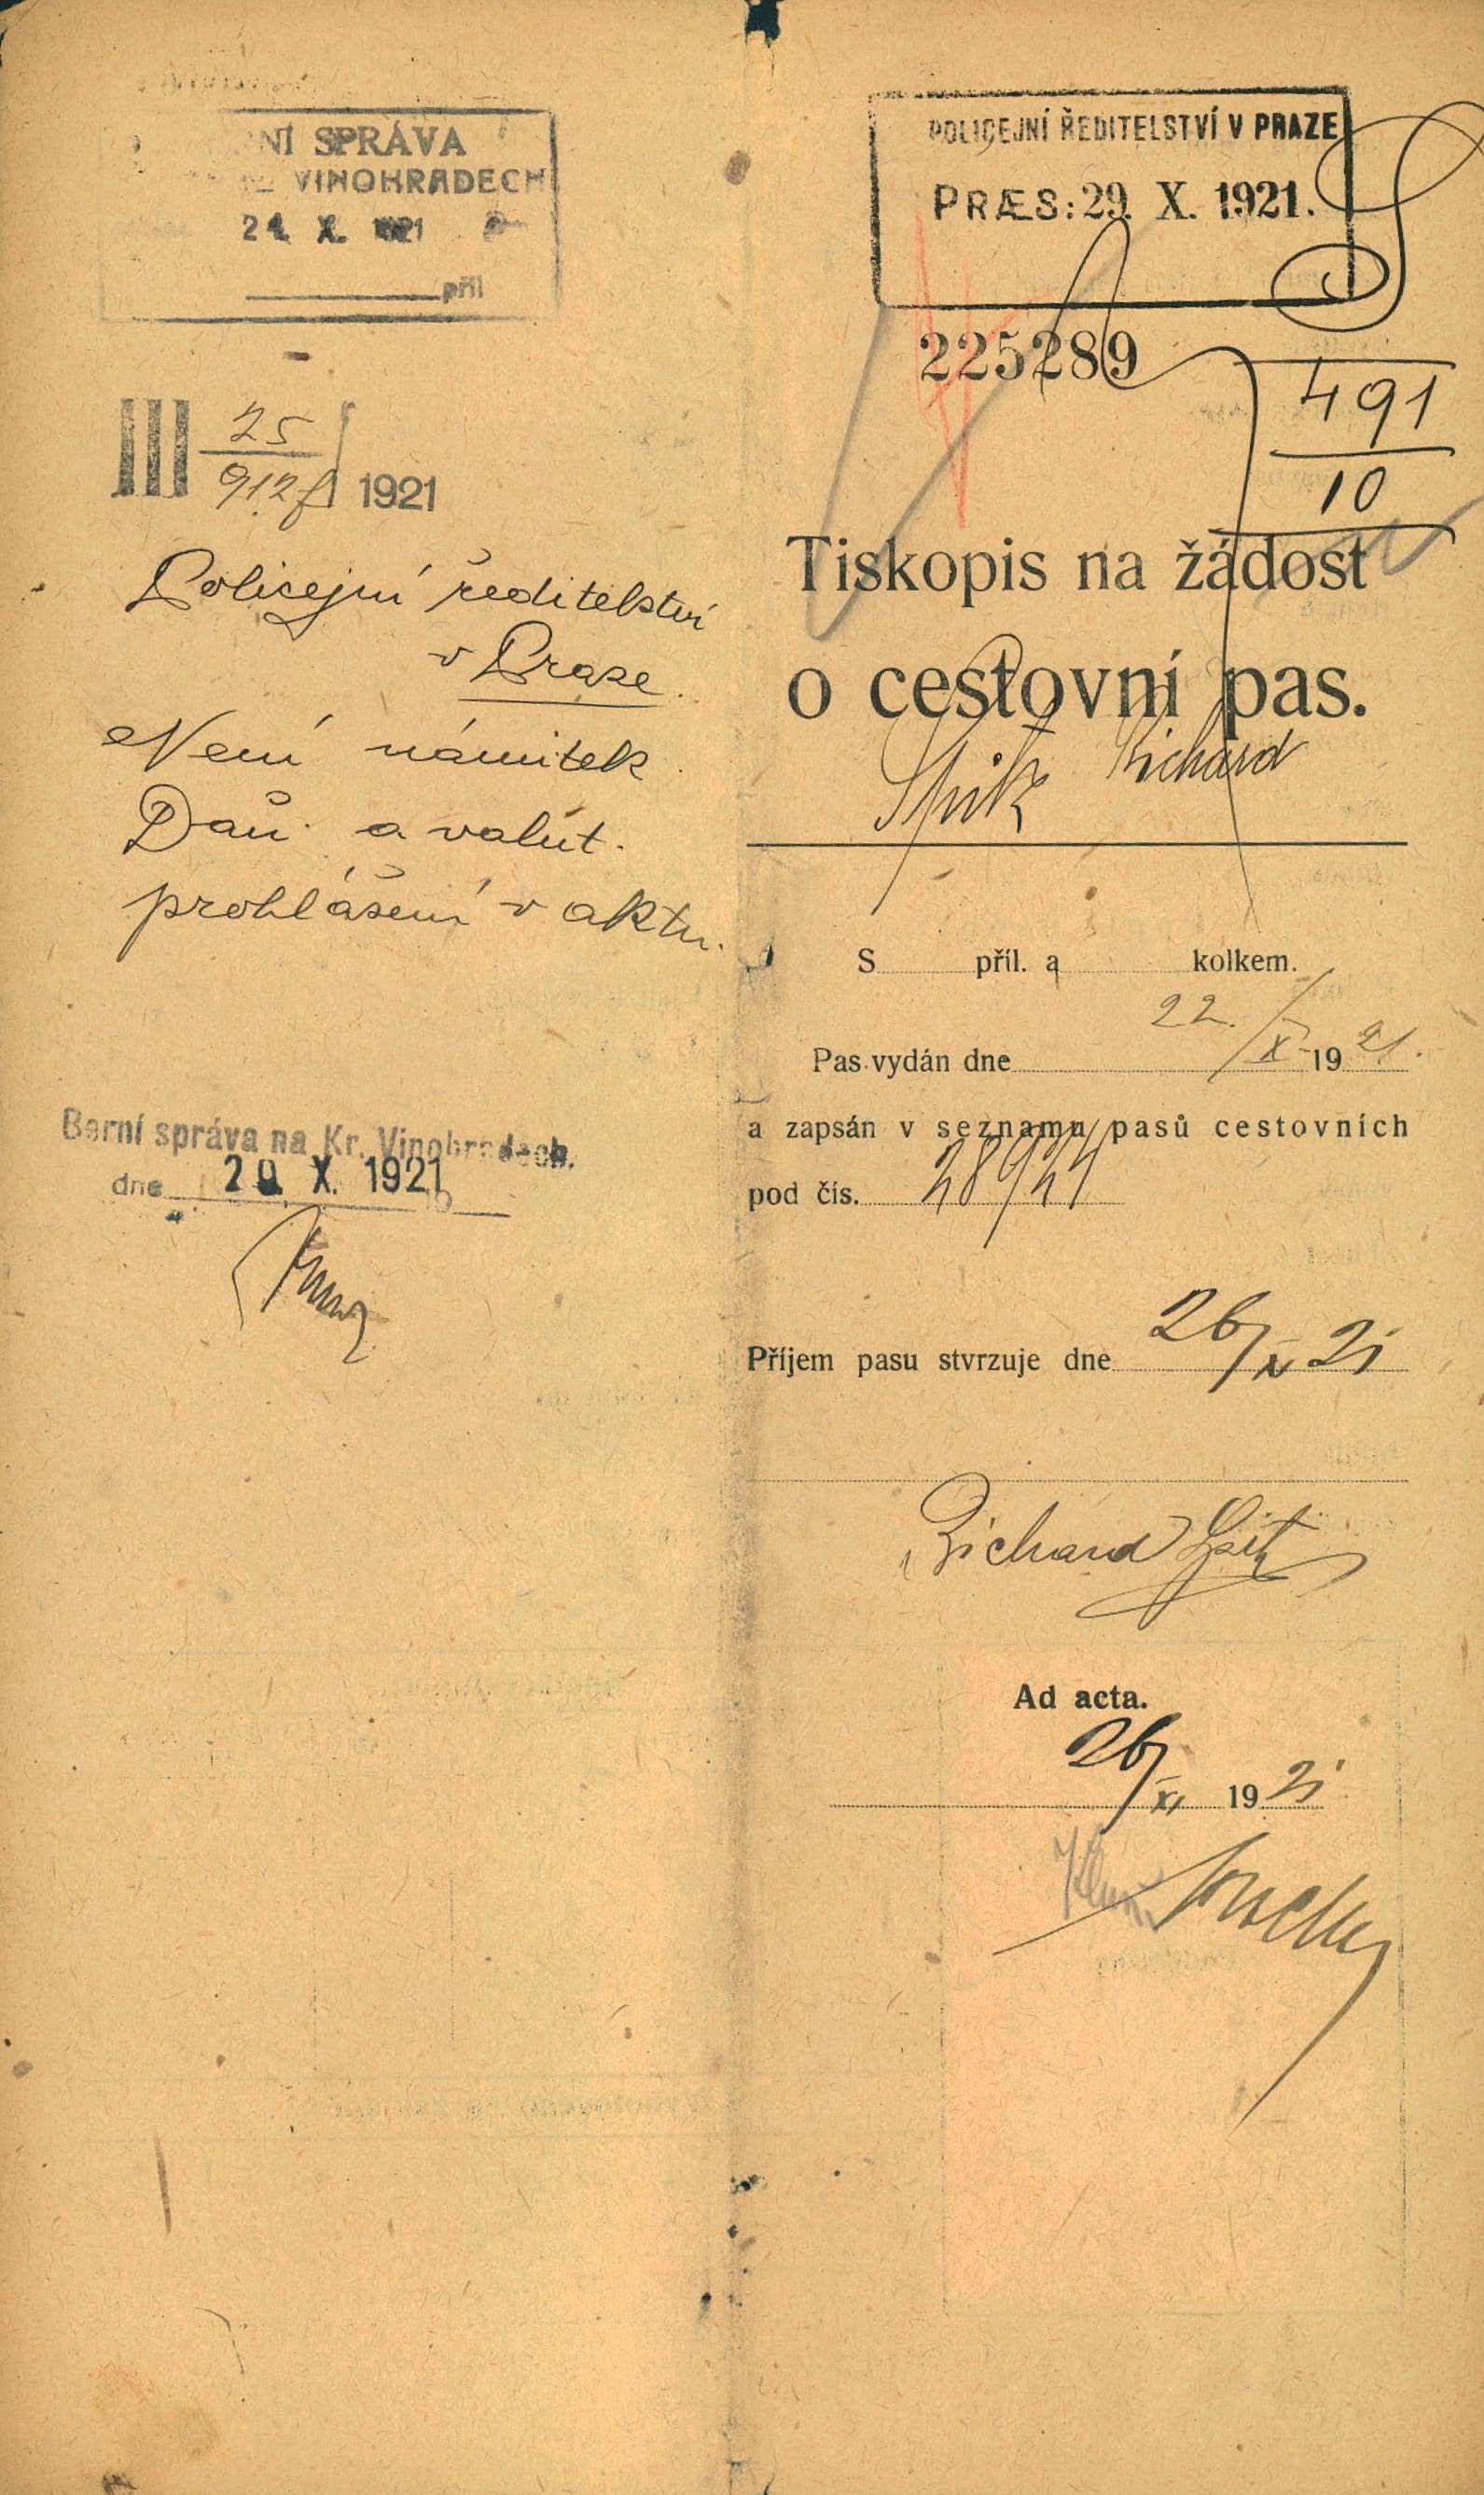 NÍ SPRÁVA
VINOHRADECH
24. X. 1921
příl
III 25
912 1921
Policejní ředitelství
v Praze.
Není námitek.
Daň. a valut.
prohlášení v aktu.
Berní správa na Kr. Vinohradech.
dne 20. X. 1921
POLICEJNÍ ŘEDITELSTVÍ V PRAZE
PRÆS: 29. X. 1921.
225289
491
10
Tiskopis na žádost
o cestovní pas.
Richard
S příl. a kolkem.
Pas vydán dne 22./X 1921.
a zapsán v seznamu pasů cestovních
pod čís. 28924
Příjem pasu stvrzuje dne 26/XI 21
Richard
Ad acta.
26/XI 1921